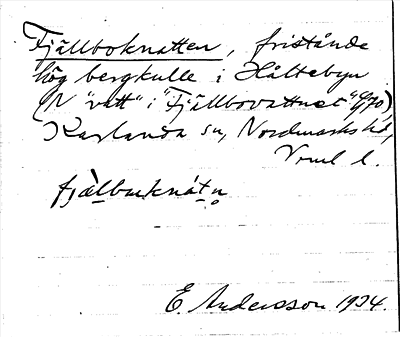 Fjällboknatten, fristående
hög bergkulle i Håltebyn
(N "vatt" i "Fjällbovattnet" 4/70),
Karlanda sn, Nordmarks hd,
Vrml l.
fjälbuknátn
E. Andersson 1934.